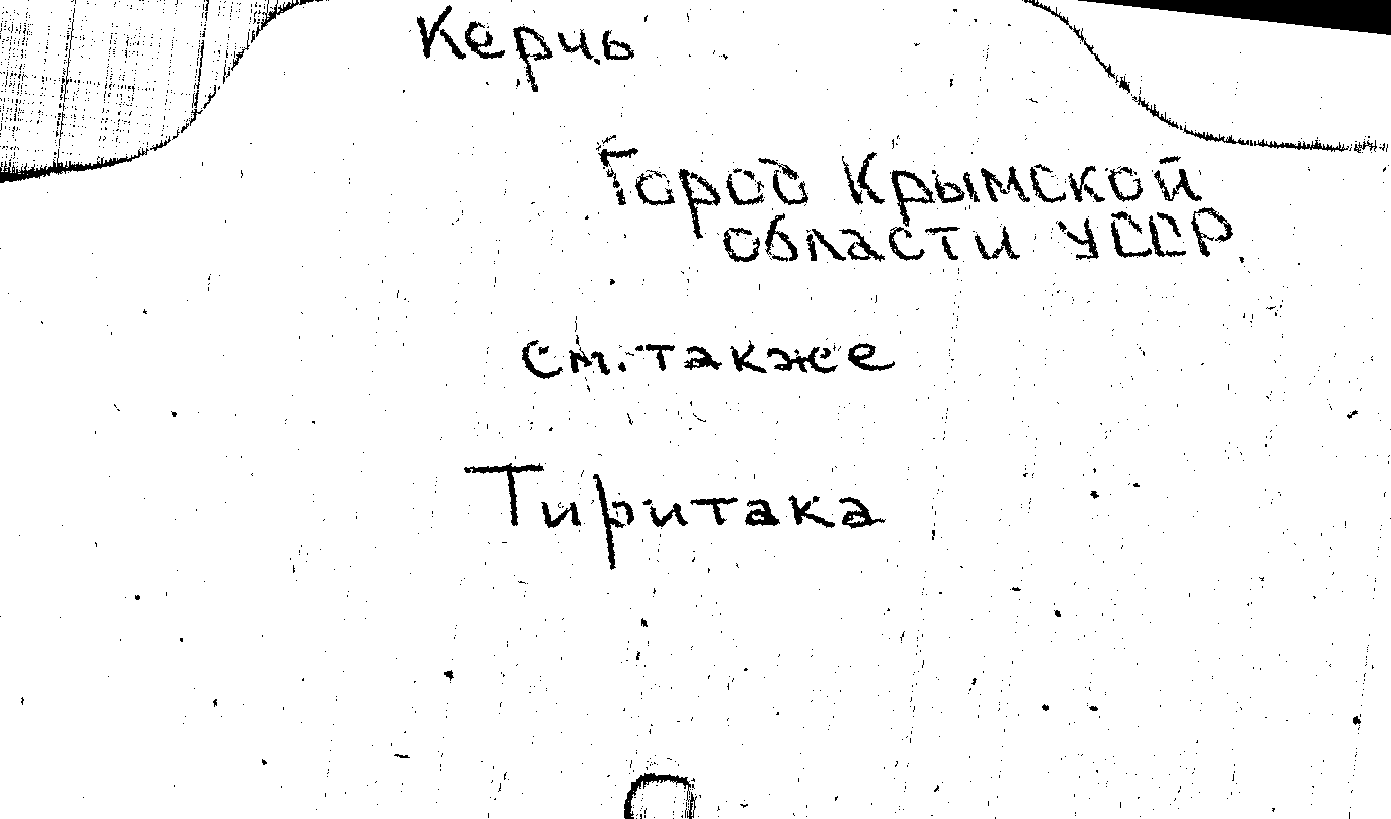 Керчь
Город Крымской
области УССР.
см. также
Тиритака